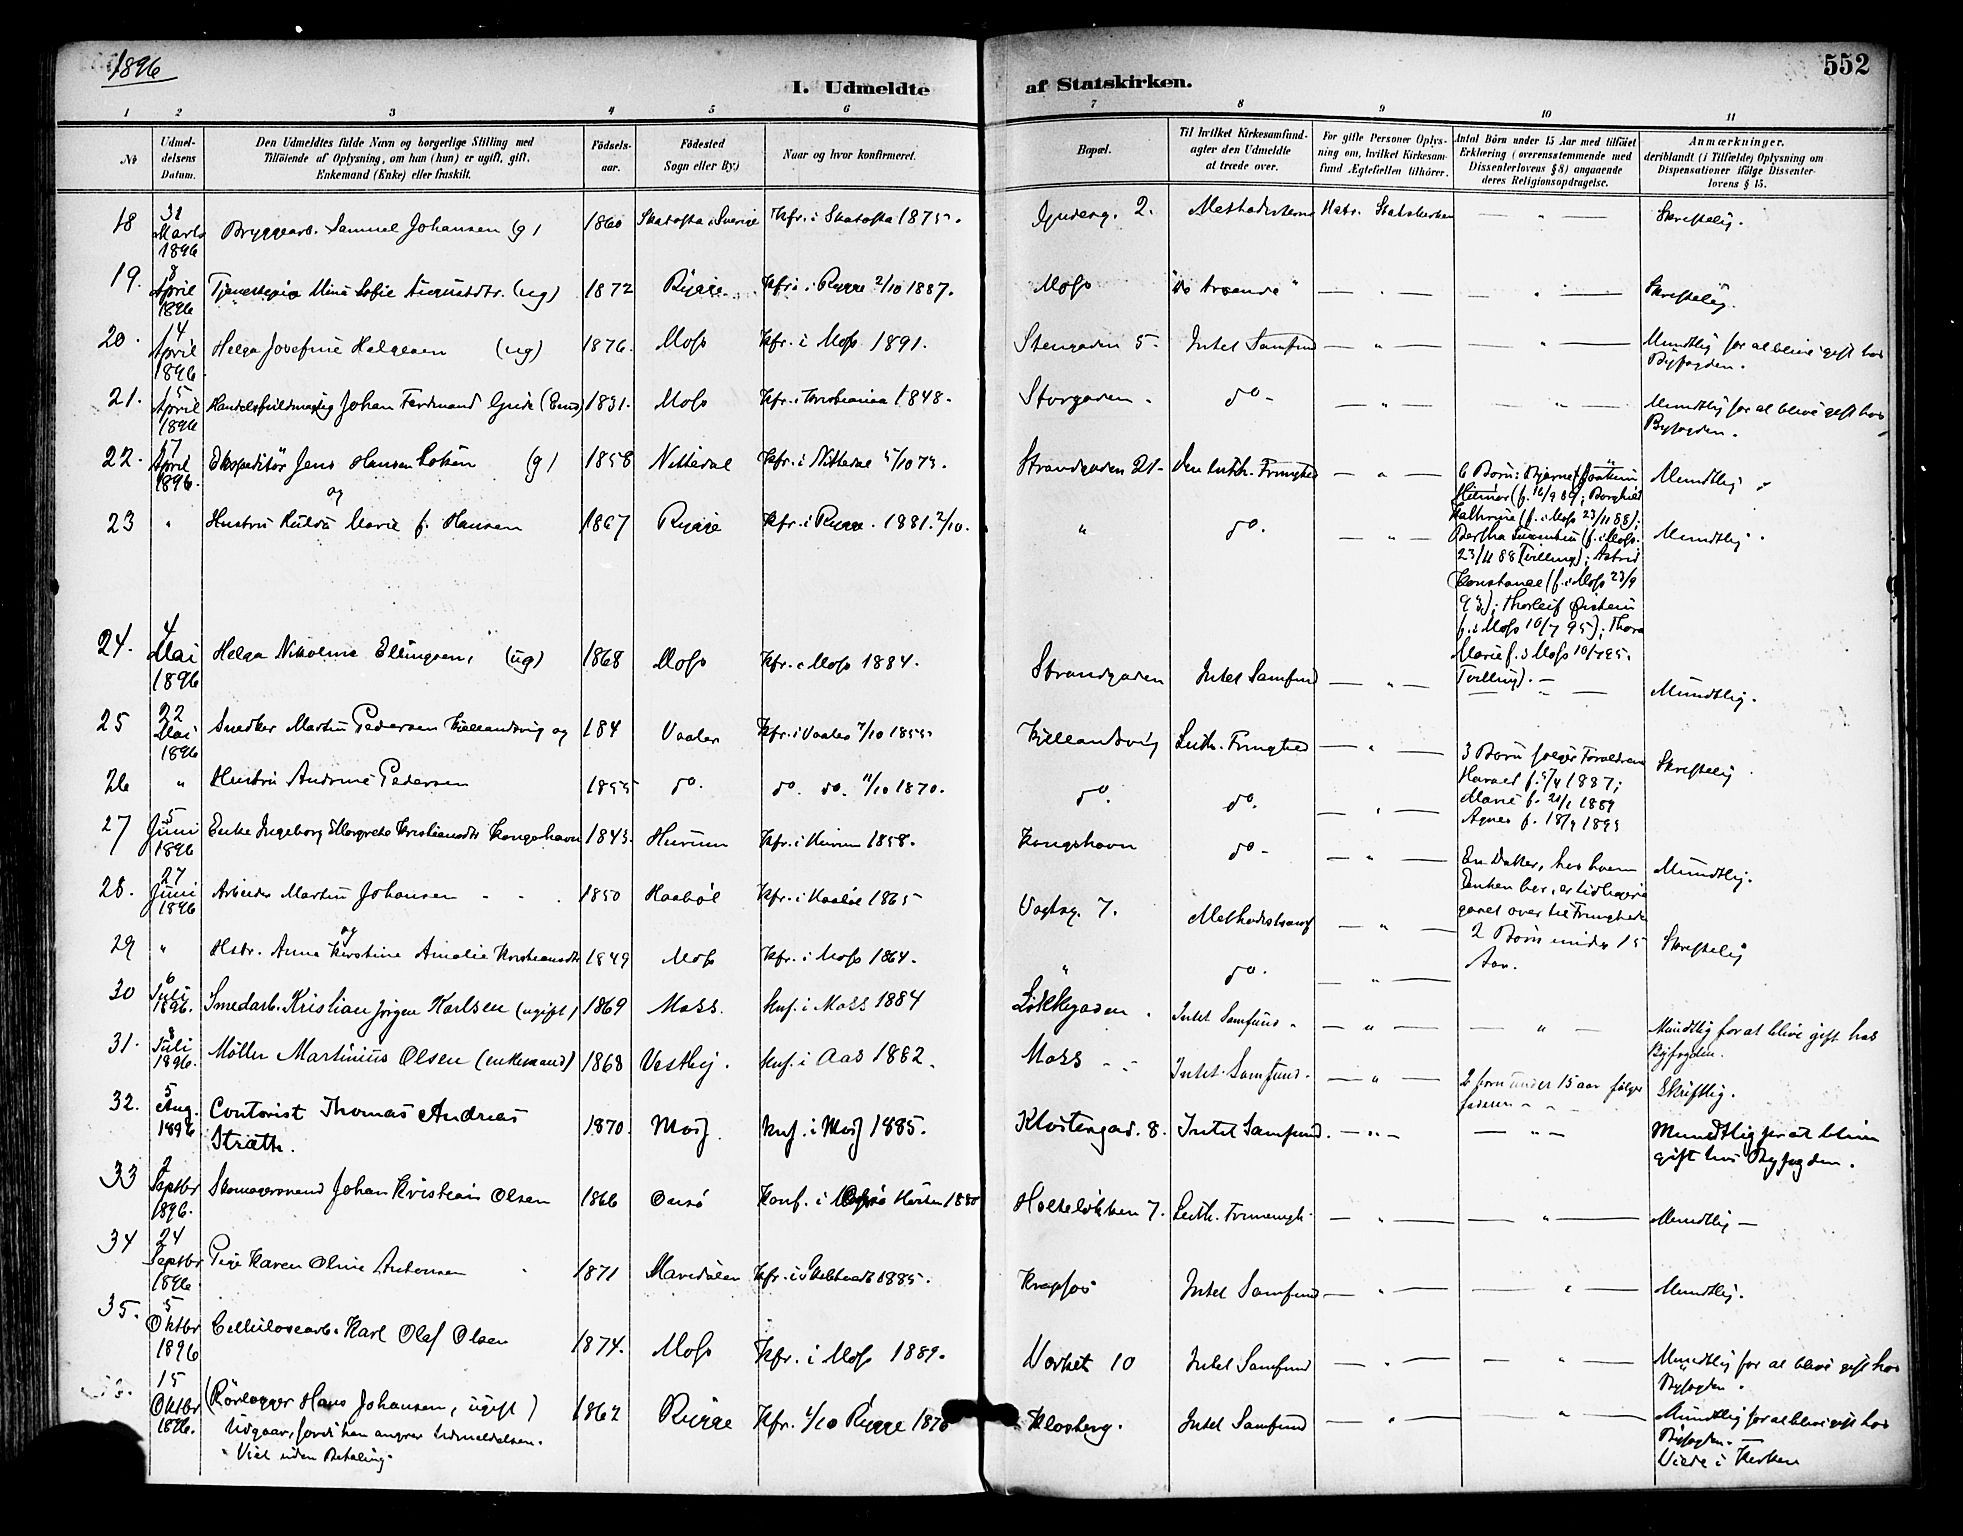 1896
552
I. Udmeldte af Statskirken.
1 2 3 4 5 6 7 8 9 10 11
No
Udmel-
delsens
Datum.
Den Udmeldtes fulde Navn og borgerlige Stilling med
Tilføiende af Oplysning, om han (hun) er ugift, gift.
Enkemand (Enke) eller fraskilt.
Födsels-
aar.
Födested
Sogn eller By.)
Naar og hvor konfirmeret.
Bopæl.
Til hvilket Kirkesamfund-
agter den Udmeldte
at træde over.
For gifte Personer Oplys-
ning om, hvilket Kirkesam-
fund Ægtefællen tilhörer.
Antal Börn under 15 Aar med tilföiet
Erklæring (overensstemmende med
Dissenterlovens § 8) angaaende
deres Religionsopdragelse.
Anmærkninger,
deriblandt (i Tilfælde) Oplysning om
Dispensationer ifölge Dissenter-
lovens § 15.
18 31 Marts 1896 Bryggearb. Samuel Johansen (g) 1860 Skatofta Sverige Kfr. i Skatofta 1875. 2. Methodisterne Hstr. Statskirken — " — Skriftlig.
19. 8 April 1896 Tjenestepige Mina Sofie Augustdtr. (ug) 1872 Rygge Kfr. i Rygge 2/10 1887. Moss — " — — " — Skriftlig.
20. 14 April 1896. Helga Josefine Helgesen (ug) 1876. Moss Kfr. i Moss 1891. Stengaden 5. Intet Samfund — " — — " — Mundtlig for at blive gift hos
Byfogden.
21. 15 April 1896 Johan Ferdinand Gude (Enkm) 1831. Moss Kfr. i Kristiania 1848. Storgaden. do — " — — " — Mundtlig for at blive gift hos
Byfogden.
22. 17 April 1896. Ekspeditör Jens Hansen Loken (g) 1858 Nittedal Kfr. i Nittedal Strandgaden 21 Den luth. Frimghed — " — Mundtlig
og
23 " Hustru Hulda Marie f. Hansen 1867 Rygge Kfr. i Rygge. 1881. 2/10. " do. — " — Mundtlig.
6 Börn: Bjarne
Hilmar (f. 16/9 89; Borghild
Kathrine (f. i Moss 23/11 88);
Bertha (f. i Moss
23/11 88 Tvilling); Astrid
Konstance (f. i Moss 23/9
93); Thorleif Øistein
f. i Moss 10/7 95); Thora
Marie f. i Moss 10/7 95.
Tvilling). —
24. 4 Mai 1896 Helga Nikoline Ellingsen, (ug) 1868 Moss Kfr. i Moss 1884. Strandgaden Intet Samfund — " — — " — Mundtlig.
25 22 Mai 1896 Snedker Martin Pedersen Kjellandsvig og 184 Vaaler Kfr. i Vaaler 7/10 1855. Kjellandsvig Luth. Frimghed — " — 3 Börn fölger Forældrene
Harald f. 5/4 1887;
Skriftlig
26 " Hustru Andrine Pedersen 1855 do. do. do. 11/10 1870. do. do. — " — Marie f. 21/1 1889
Agnes f. 18/9 1893
27 5 Juni 1896 Enke Ingeborg Margrete Kristiansdtr Kongshavn 1843. Hurum Kfr. i Hurum 1858. Kongshavn do — " — En Datter, hos hvem
Enken bor, er tidligere
gaaet over til Frimghede
Mundtlig.
28. 27 Juni 1896 Arbeider Martin Johansen 1850 Haaböl Kfr. i Haaböl 1865 Vogtsg. 7. Methodistsamf — " — 2 Börn under 15
Aar.
Skriftlig
og
29 " Hstr. Anna Kirstine Amalie Kristiansdtr 1849 Moss Kfr. i Moss 1864. " do. — " —
30 6 Juli 1896. Smedarb. Kristian Jörgen Karlsen (ugift) 1869 Moss. Knf. i Moss 1884 Lökkegaden. Intet Samfund. — " — " — Mundtlig for at blive gift hos
Byfogden.
31. 8 Juli 1896. Möller Martinius Olsen (enkemand) 1868 Vestby. Knf. i Aas 1882. Moss Intet Samfund. — " — 2 börn under 15 aar fölger
faderen
Skriftlig.
32. 5 Aug. 1896 Contorist Thomas Andreas
Strøth.
1870. Moss. Knf. i Moss 1885. Klostergad. 8. Intet Samfund. — " — — " — Mundtlig for at blive
gift hos Byfogden.
33 2 Septbr 1896. Skomagersvend Johan Kristian Olsen 1866 Onsö Konf. i Horten 1880 Holtelökken 7. Luth. — " — — " — Mundtlig —
34 24 Septbr 1896 Pige Karen Oline Antonsen 1871 Maridalen Kfr. i 1885. Krapfos Intet Samfund — " — — " — Mundtlig.
35. 5 Oktbr 1896 Cellulosearb. Karl Olaf Olsen 1874. Moss Kfr. i Moss 1889. Værket 10 Intet Samfund — " — — " — Mundtlig for at blive gift hos
Byfogden.
15 Oktbr 1896. (Rörlægger Hans Johansen, ugift) 1862 Rygge Kfr. 1/10 Rygge 1876 Klosterg. Intet Samfund — " — " — Mundtlig for at blive gift hos
Byfogden.
Udgaar, fordi han angrer Udmeldelsen.
Viet uden Betaling.
Viede i Kirken